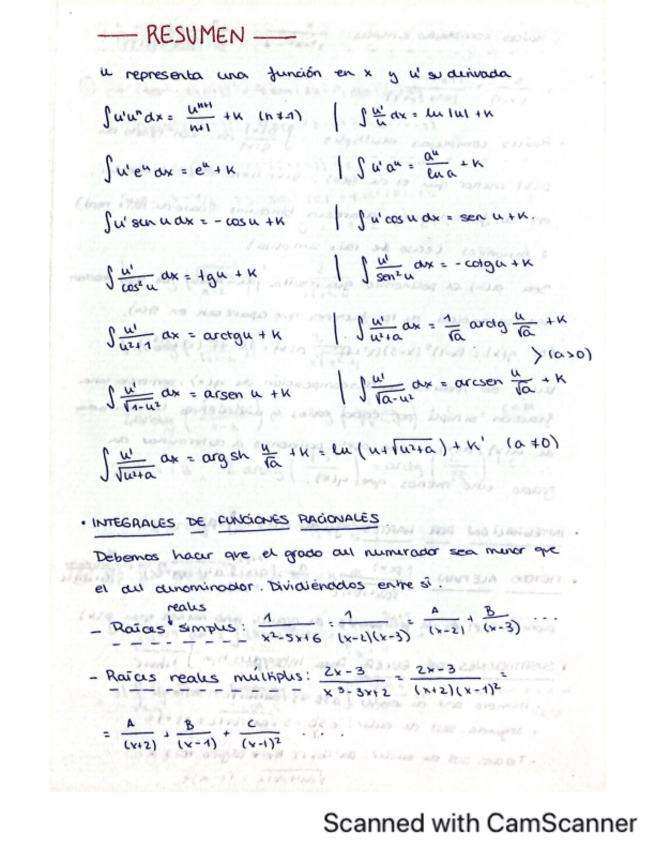 — RESUMEN —
u representa una función en x y u' su derivada
∫u'uⁿdx = uⁿ⁺¹/n+1 + K (n≠1) | ∫ u'/u dx = ln |u| + K
∫u'eᵘ dx = eᵘ + K | ∫u'aᵘ = aᵘ/ln a + K
∫u' sen u dx = - cosu + K | ∫u' cos u dx = sen u + K.
∫ u'/cos²u dx = tgu + K | ∫ u'/sen²u dx = - cotgu + K
∫ u'/u²+1 dx = arctgu + K | ∫ u'/u²+a dx = 1/√a arctg u/√a + K
> (a>0)
∫ u'/√1-u² dx = arsen u + K | ∫ u'/√a-u² dx = arcsen u/√a + K
∫ u'/√u²+a dx = arg sh u/√a + K = ln (u+√u²+a) + K' (a ≠0)
· INTEGRALES DE FUNCIONES RACIONALES
Debemos hacer que el grado del numerador sea menor que
el del denominador. Dividiéndolos entre sí.
reales
- Raíces simples: 1/x²-5x+6 = 1/(x-2)(x-3) = A/(x-2) + B/(x-3) ...
- Raíces reales múltiples: 2x-3/x³-3x+2 = 2x-3/(x+2)(x-1)² =
= A/(x+2) + B/(x-1) + C/(x-1)² ...
Scanned with CamScanner